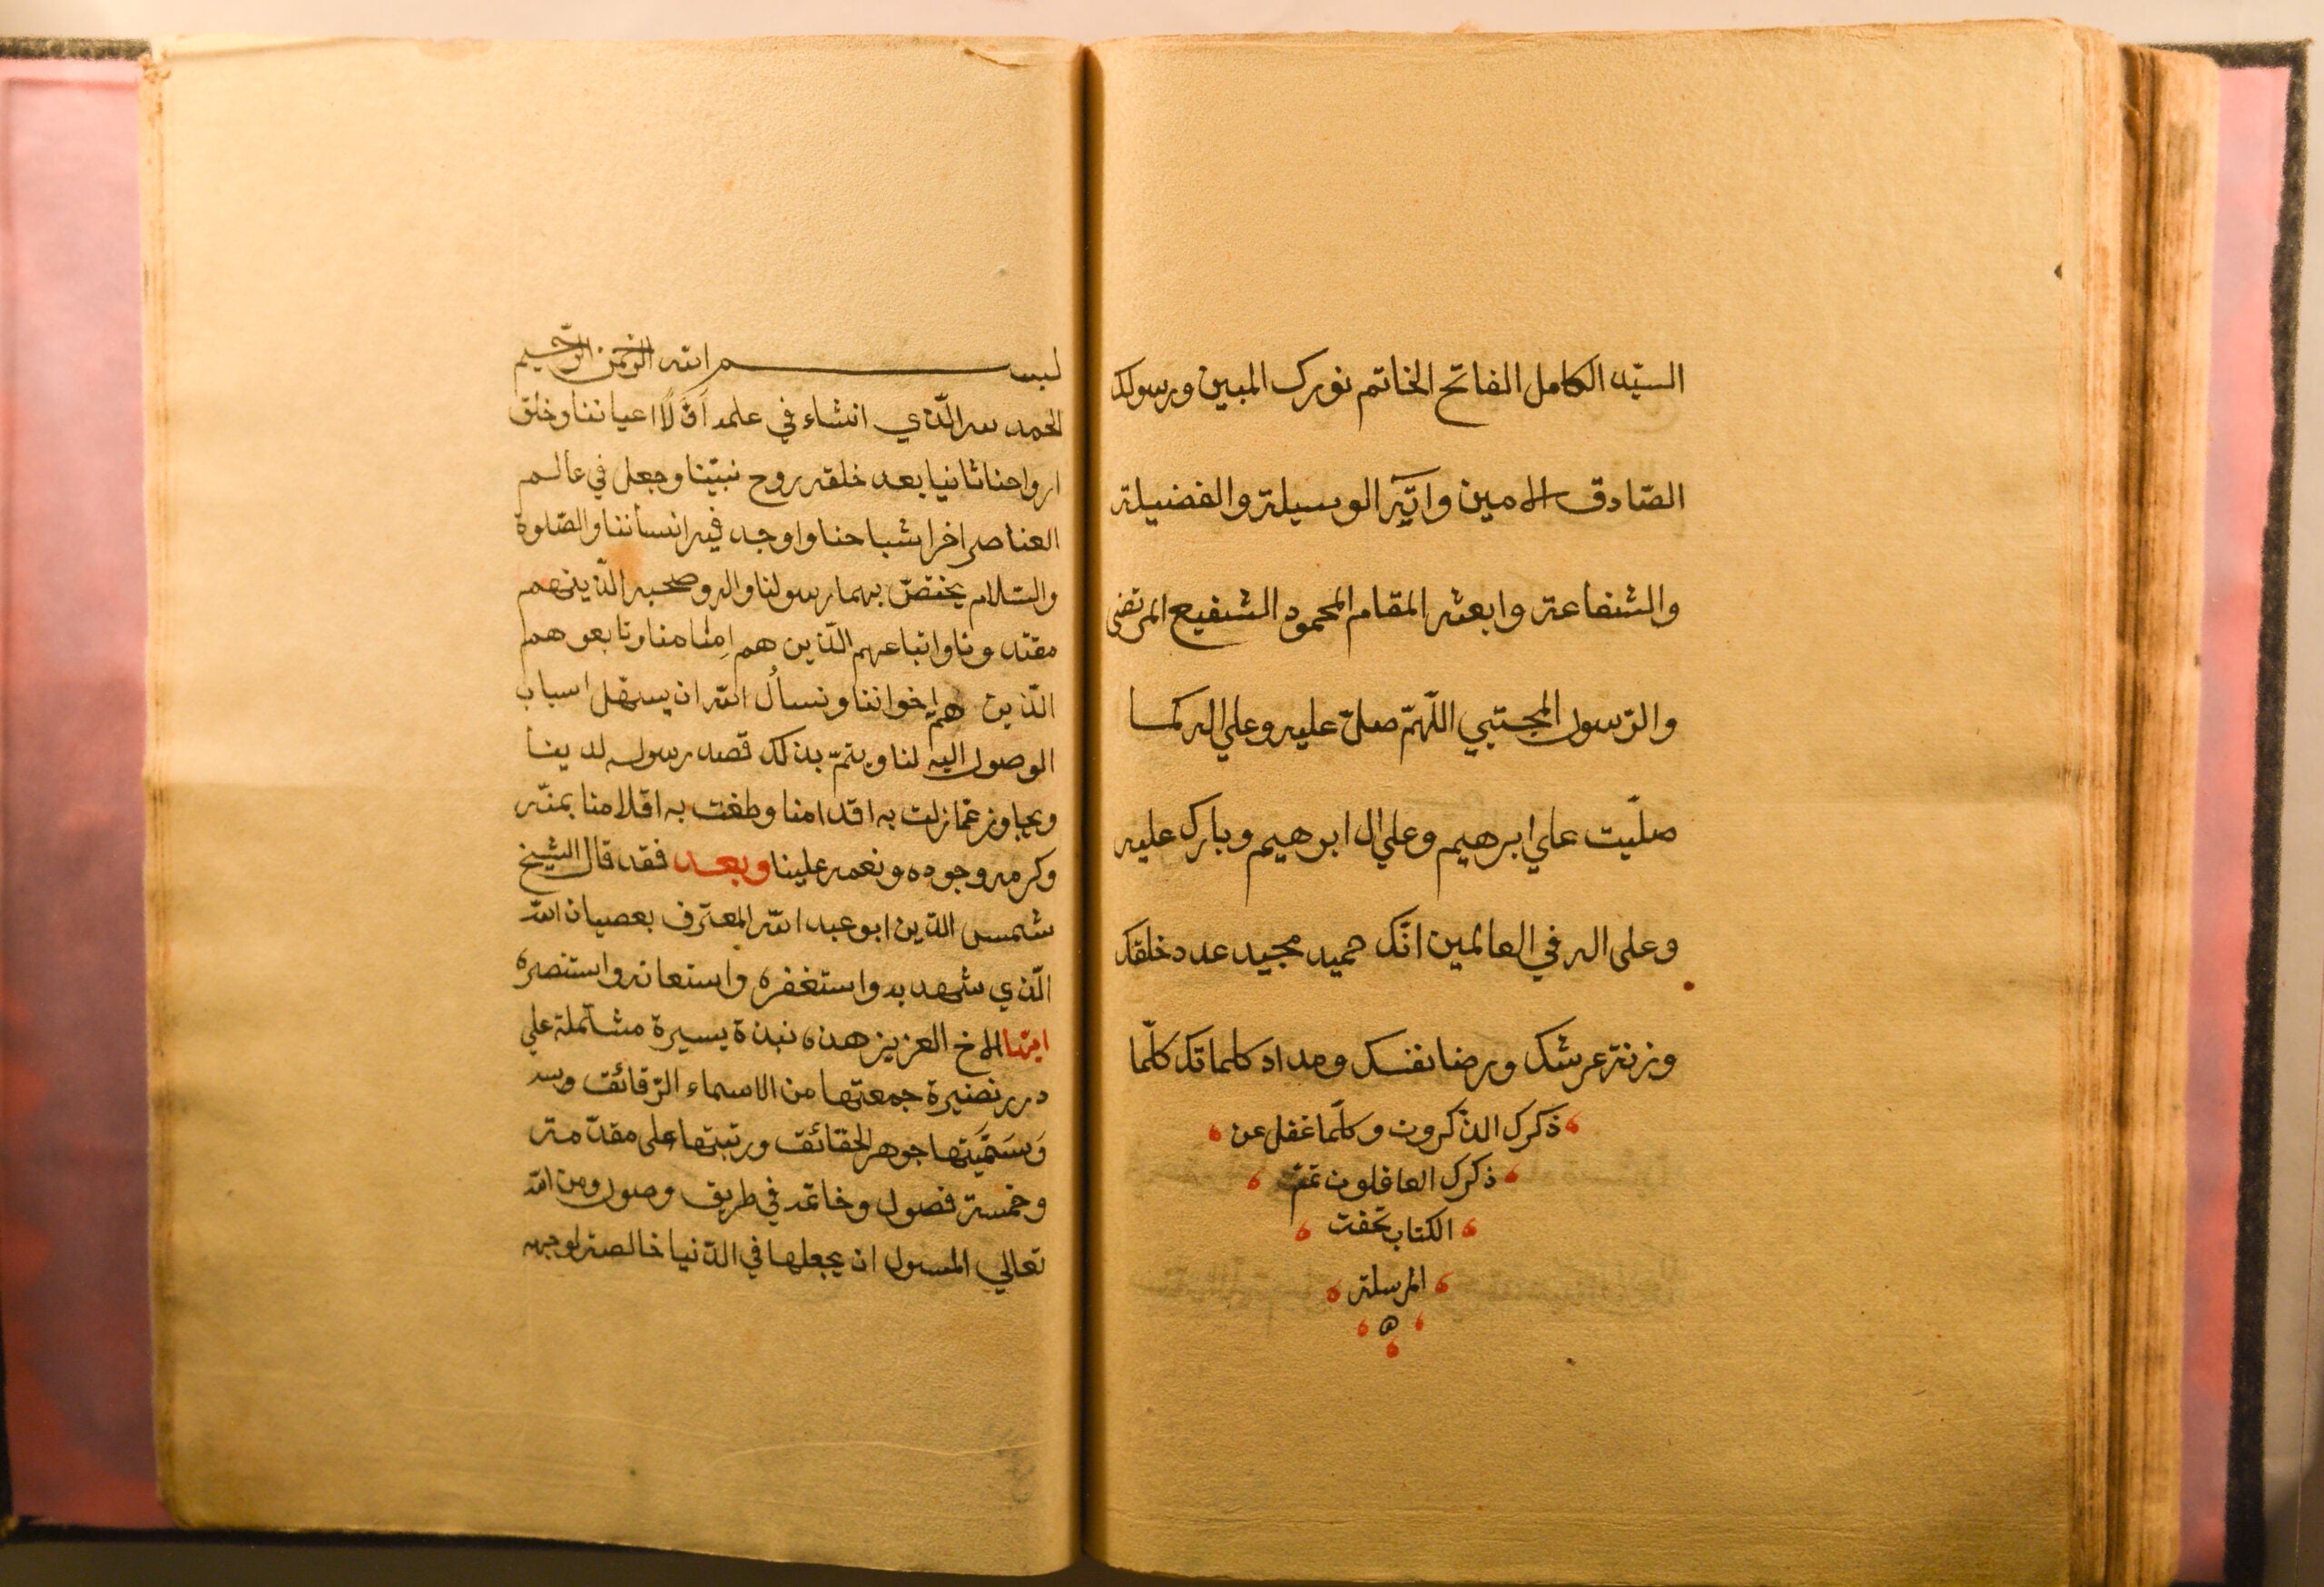 السيّد الكامل الفاتح الخاتم نورك المبين ورسولك
الصّادق الامين واتيه الوسيلة والفضيلة
والشفاعة وابعثه المقام المحمود الشفيع المرتضى
والرّسول المجتبي اللّهمّ صلّ عليه وعلي اله كما
صلّيت علي ابرهيم وعلي ال ابرهيم وبارك عليه
وعلى اله في العالمين انّك حميد مجيد عدد خلقك
وزنة عرشك ورضا نفسك ومداد كلماتك كلّما
ذكرك الذّكرون وكلّما غفل عن
ذكرك الغافلون تمّ
الكتاب تحفت
المرسلة
ه
بسم الله الرّحمن الرّحيم
الحمد لله الّذي انشاء في علمه اَوَّلًا اعياننا وخلق
ارواحنا ثانيا بعد خلقه روح نبيّنا وجعل في عالم
العناصر اخرا شباحنا واوجد فيه انسأننا والصّلوة
والسّلام يختصّ بهما رسولنا واله وصحبه الّذينهم
مقتدونا واتباعهم الّذين هم اِمامنا وتابعوهم
الّذين هم اخواننا ونسأل الله ان يسهّل اسباب
الوصول اليه لنا ويتمّ بذلك قصد رسوله لدينا
ويجاوز عمّا زلت به اقدامنا وطغت به اقلامنا بمنّه
وكرمه وجوده ونعمه علينا وبعد فقد قال الشيخ
شمس الدّين ابو عبد الله المعترف بعصيان الله
الّذي شهد به واستغفره واستعانه واستنصره
ايّها الاخ العزيز هذه نبذة يسيرة مشتملة علي
درر نضيرة جمعتها من الاسماء الرّقائق
وَسَمَّيتها جوهر الحقائق ورتبتها على مقدّمة
وخمسة فصول وخاتمه في طريق وصول ومن الله
تعالي المسول ان يجعلها في الدّنيا خالصة لوجهه